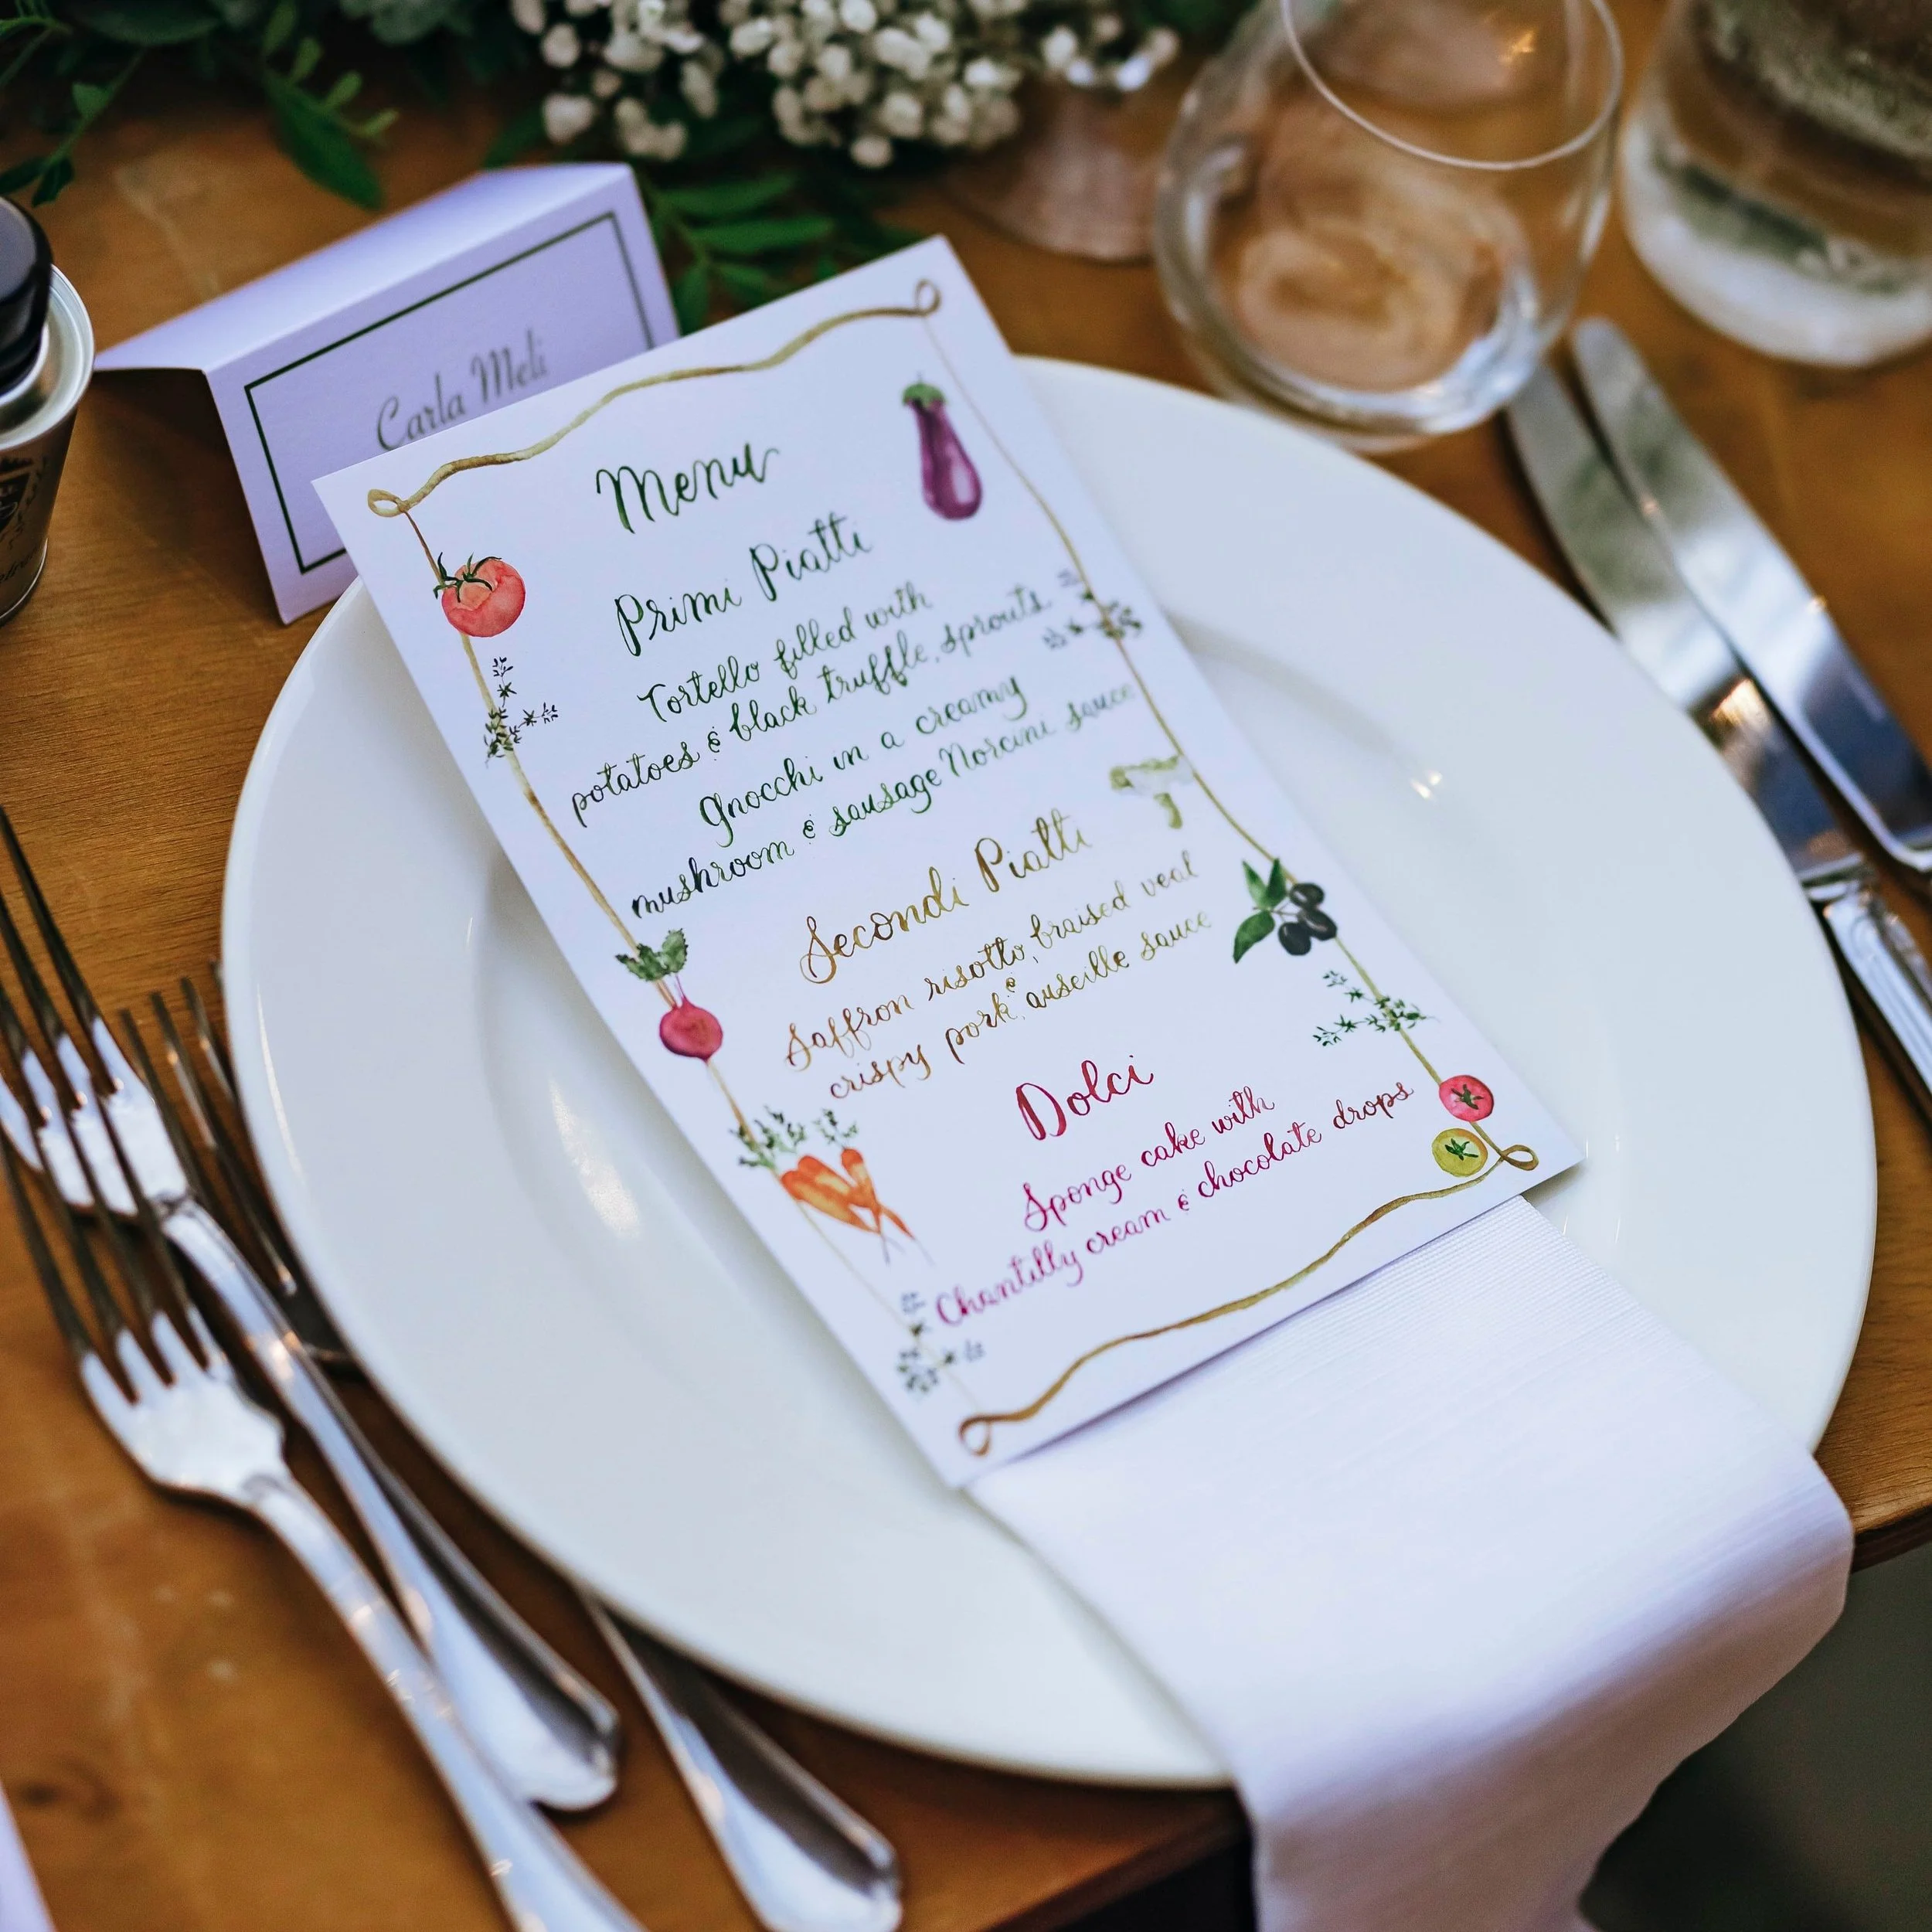 Carla Meli
Menu
Primi Piatti
Tortello filled with
potatoes & black truffle, sprouts
Gnocchi in a creamy
mushroom & sausage Norcini sauce
Secondi Piatti
Saffron risotto, braised veal
& crispy pork, auseille sauce
Dolci
Sponge cake with
Chantilly cream & chocolate drops